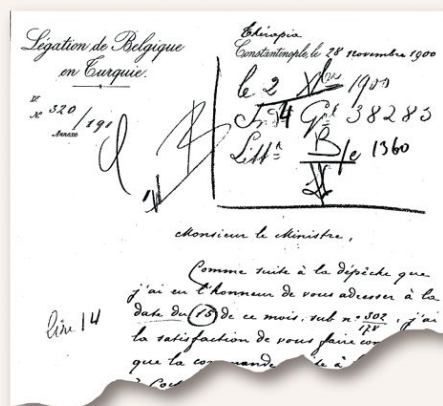 Légation de Belgique
en Turquie.
N° 320/191
Annexe
Thérapia
Constantinople, le 28 novembre 1900
le 2 Xbre 1900
Gal 38283
Litt B/e 1360
Monsieur le Ministre,
Comme suite à la dépêche que
j'ai eu l'honneur de vous adresser à la
date du 15 de ce mois, sub n° 302/178, j'ai
la satisfaction de vous faire
que la commande